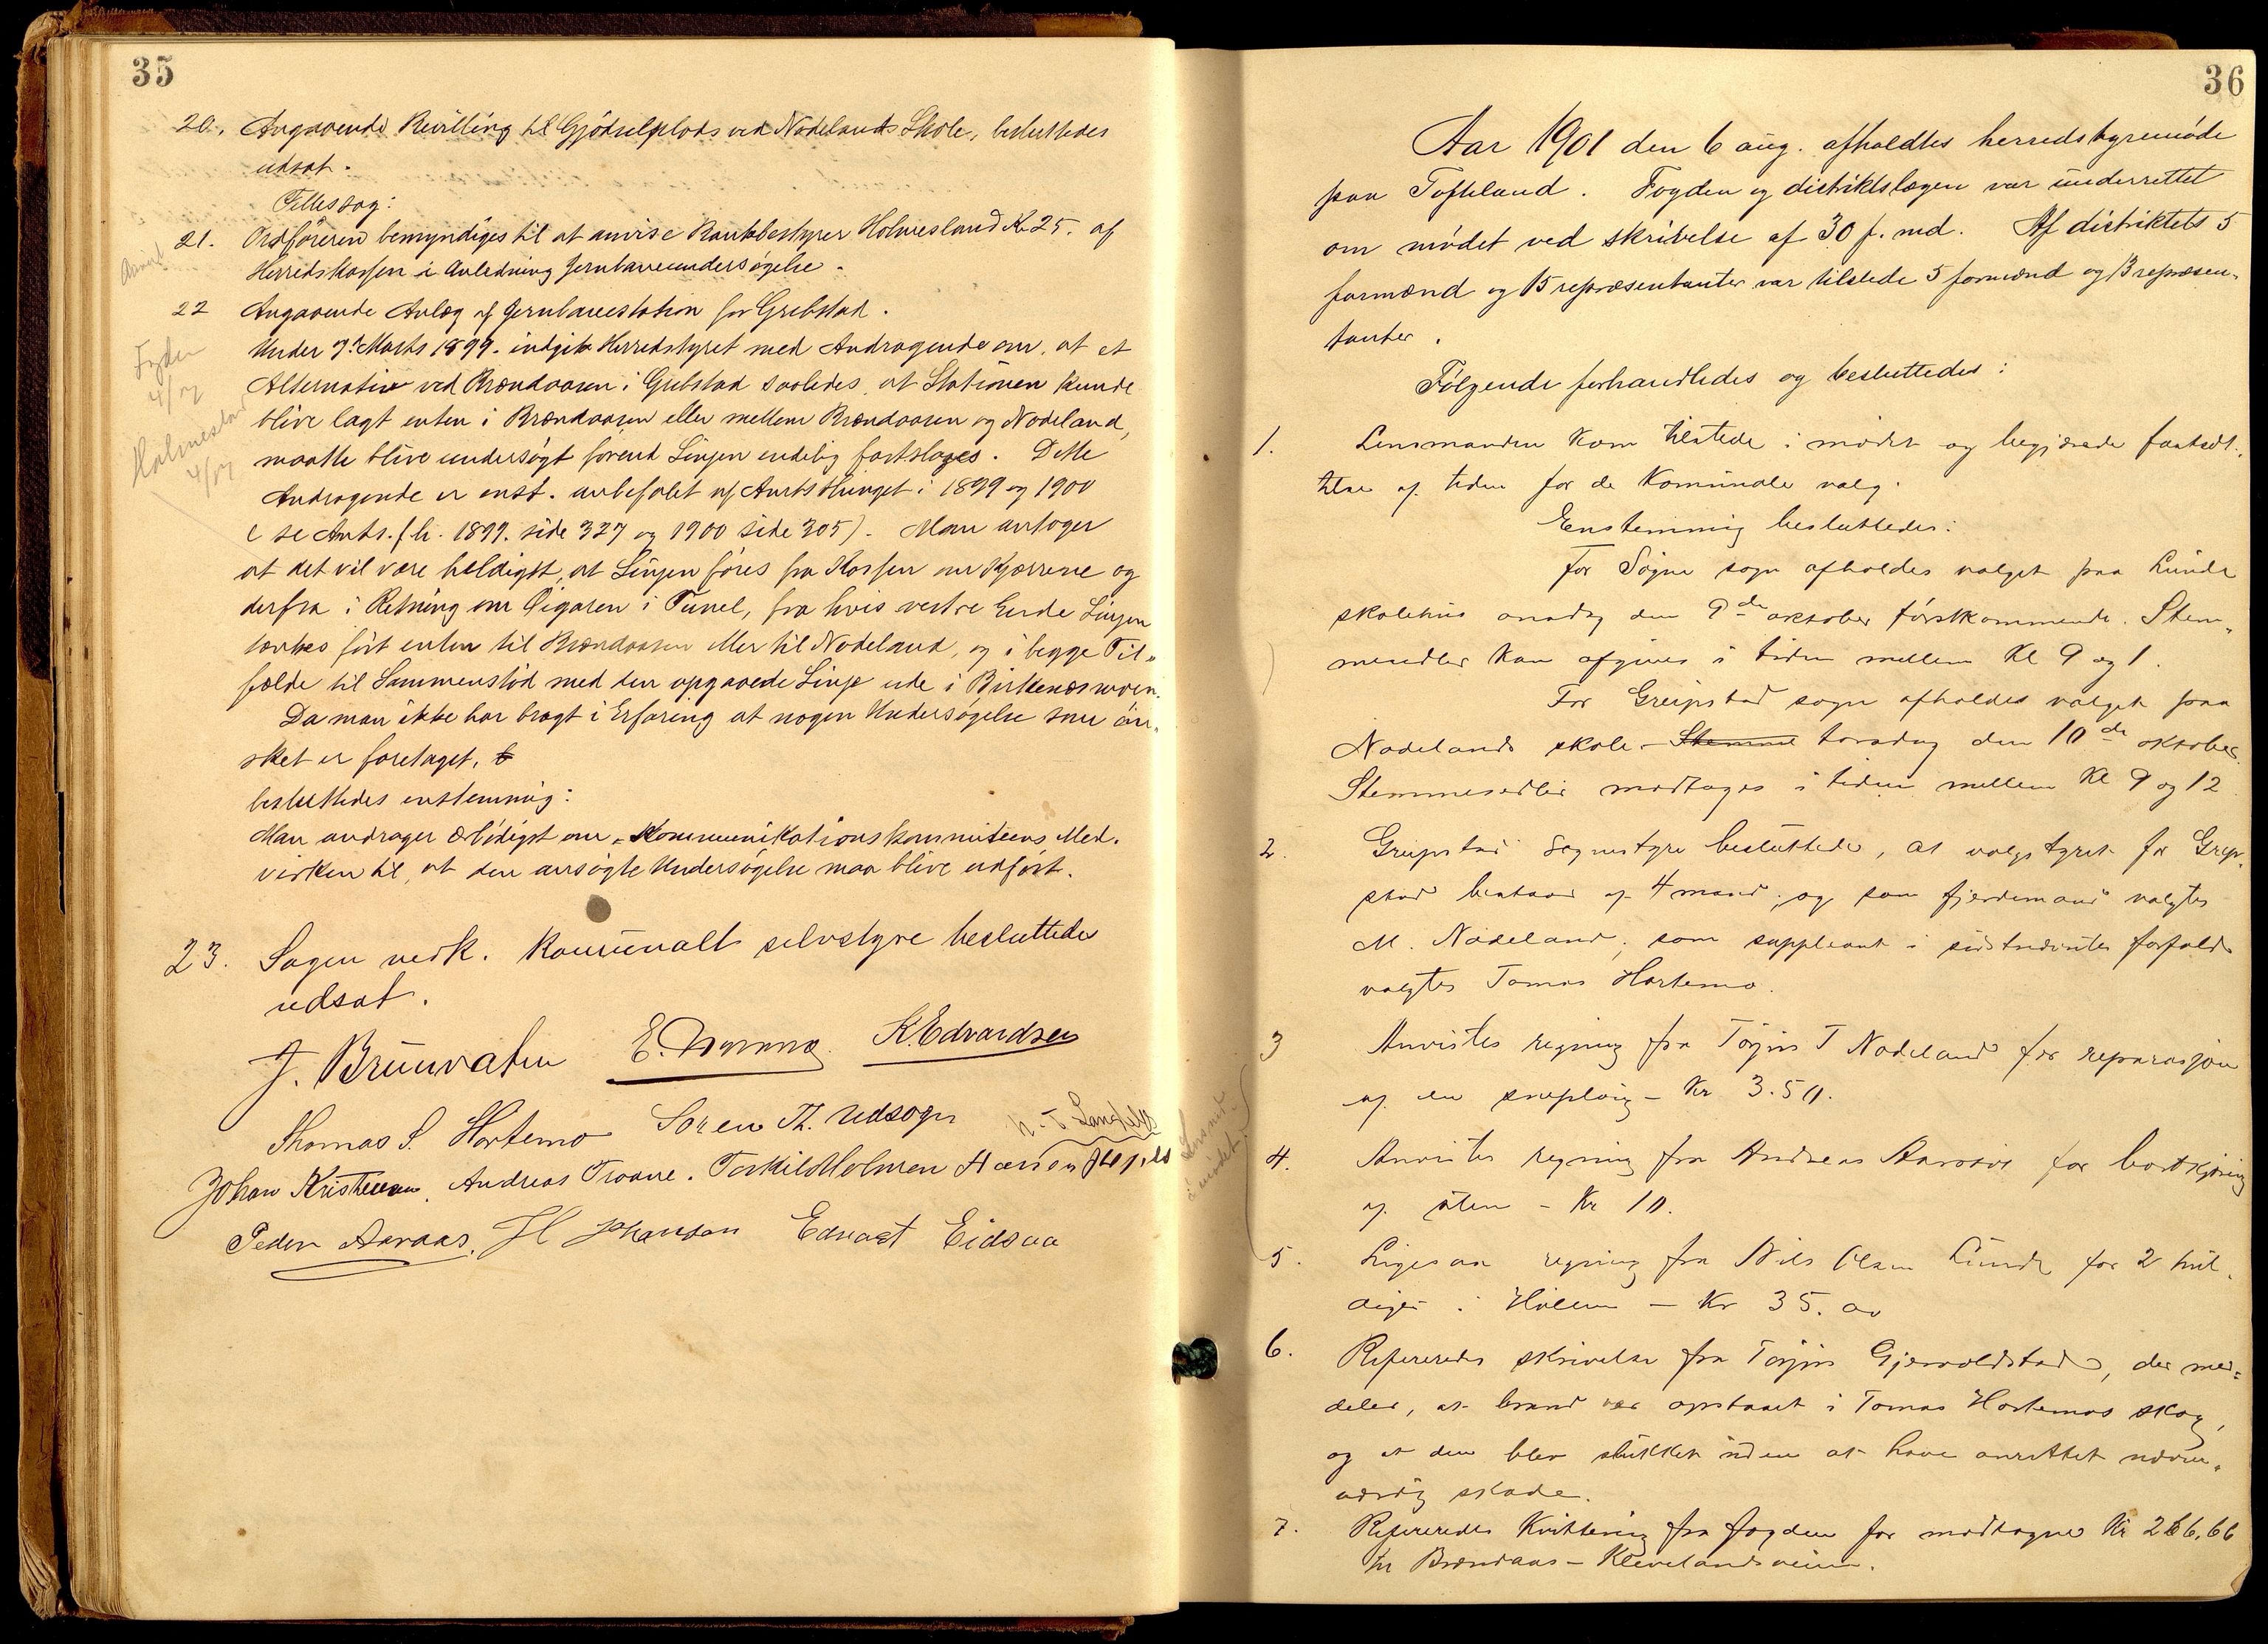 35
20. Angaaende Bevilling til Gjödselplads ved Nodelands Skole, besluttedes
udsat.
Tillegssag:
21. Ordföreren bemyndiges til at anvise Bankbestyrer Holmesland Kr 25. af
Herredskassen i Anledning Jernbaneundersögelse.
Anvist
22 Angaaende Anlæg af Jernbanestation for Grebstad.
Under 7de Marts 1899. indgik Herredstyret med Andragende om, at et
Alternativ ved Brændaasen i Grebstad saaledes at Stationen kunde
blive lagt enten i Brændaasen eller mellem Brændaasen og Nodeland,
maatte blive undersögt förend Linjen endelig fastslages. Dette
Andragende er enst. anbefalet af Amtsthinget i 1899 og 1900
(se Amts. fh. 1899. side 327 og 1900 side 305). Man antager
at det vil være heldigst, at Linjen föres fra Kossen om Kjærrene og
derfra i Retning om Qigaren i Tunel, fra hvis vestre Ende Linjen
tænkes fört enten til Brændaasen eller til Nodeland, og i begge Til„
fælde til Sammenstöd med den opgaaede Linje ude i
Da man ikke har bragt i Erfaring at nogen Undersögelse som ön„
sket er foretaget,
besluttedes enstemmig:
Man andrager ærbödigst om Kommunikationskommiteens Med.
virken til, at den ansögte Undersögelse maa blive udfört.
Fogden
4/07
Holmesland
4/07
23. Sagen vedk. Komunalt selvstyre besluttedes
udsat.
J. Brunvatn K. Edvardsen
Thomas S. Hortemo Sören Th. Udsogn
Johan Kristensen, Andreas Troane. Torkild Holmen Hans
Peder Aaraas. H Johansen Edvart Eidsaa
36
Aar 1901 den 6 aug. afholdtes herredstyremöde
paa Tofteland. Fogden og distriktslægen var underrettet
om mödet ved skrivelse af 30 f. md. Af distriktets 5
formænd og 15 repræsentanter var tilstede 5 formænd og 13 repræsen„
tanter.
Fölgende forhandledes og besluttedes:
1. Lensmanden kom tilstede i mödet og begjærede fastsæt„
telse af tiden for de Komunale valg.
Enstemmig besluttedes:
For Sögne sogn afholdes valget paa Lunde
skolehus onsdag den 9de oktober förstkommende. Stem„
mesedler kan afgives i tiden mellem Kl 9 og 1.
For Greipstad sogn afholdes valget paa
Nodelands skole – Stemme torsdag den 10de oktober
Stemmesedler modtages i tiden mellem Kl 9 og 12
2. Greipstad Sognestyre besluttede, at valgstyret for Greip„
stad bestaar af 4 mand; og som fjerdemand valgtes
M. Nodeland; som suppleant i sidstnævntes forfald
valgtes Tomas Hortemo.
3 Anvistes regning fra Törjus T Nodeland for reparasjon
af en sneplog – Kr 3.50.
4. Anvistes regning fra Andreas Aarosös for bortkjöring
af sten – Kr 10.
5. Ligesaa regning fra Nils Olsen Lunde for 2 hul„
Höllen – Kr 35.00
Lensmd
i mödet
6. Refereredes skrivelse fra Törjus Gjervoldstad, der med=
deler, at brand var opstaaet i Tomas Hortemos skog,
og at den blev slukket uden at have anrettet nævne„
værdig skade.
7. Refereredes Kvittering fra fogden for modtagne Kr 266,66
til Brændaas – Klevelandsveien.